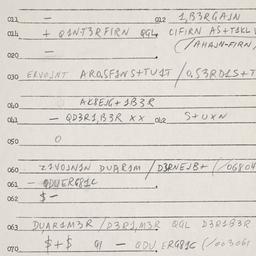 011 — 012 1,B3RGAJN
014 + Q1NT3RFIRN QGL CIFIRN AS+T1KL
(/AHAJN-FIRN
020 —
030 ERVOJNT AROSFINS+TU1T /O,S3RD1S+T
040 AK8EJG+1B3R
041 — QD3R1,B3R XX 042 S+UXN
050 O
060 Z1VOJN1N DUAR1M /D3RNEJB+ (/06804
061 — QDUERG81C
062 $—
063 DUAR1M3R /D3R1,M3R QGL D3R1B3R
070 $+$ 91 — QDU ERG81C (/003061